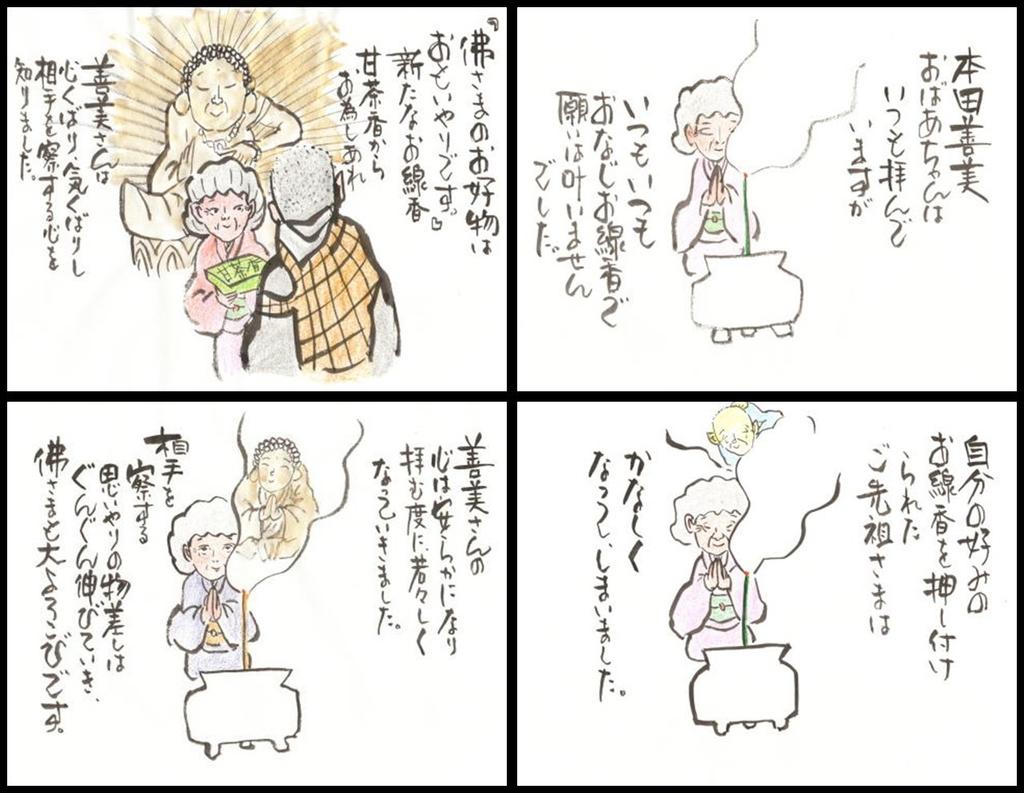 本田善美
おばあちゃんは
いつも拝んで
いますが
いつもいつも
おなじお線香で
願いは叶いません
でした。
自分の好みの
お線香を押し付け
られた
ご先祖さまは
かなしく
なってしまいました。
『佛さまのお好物は
おもいやりです。
新たなお線香
甘茶香から
お為しあれ』
甘茶香
善美さんは
心くばり、気くばりし
相手を察する心を
知りました。
善美さんの
心は安らかになり
拝む度に、若々しく
なっていきました。
相手を
察する
思いやりの物差しは
ぐんぐん伸びていき、
佛さまも大よろこびです。